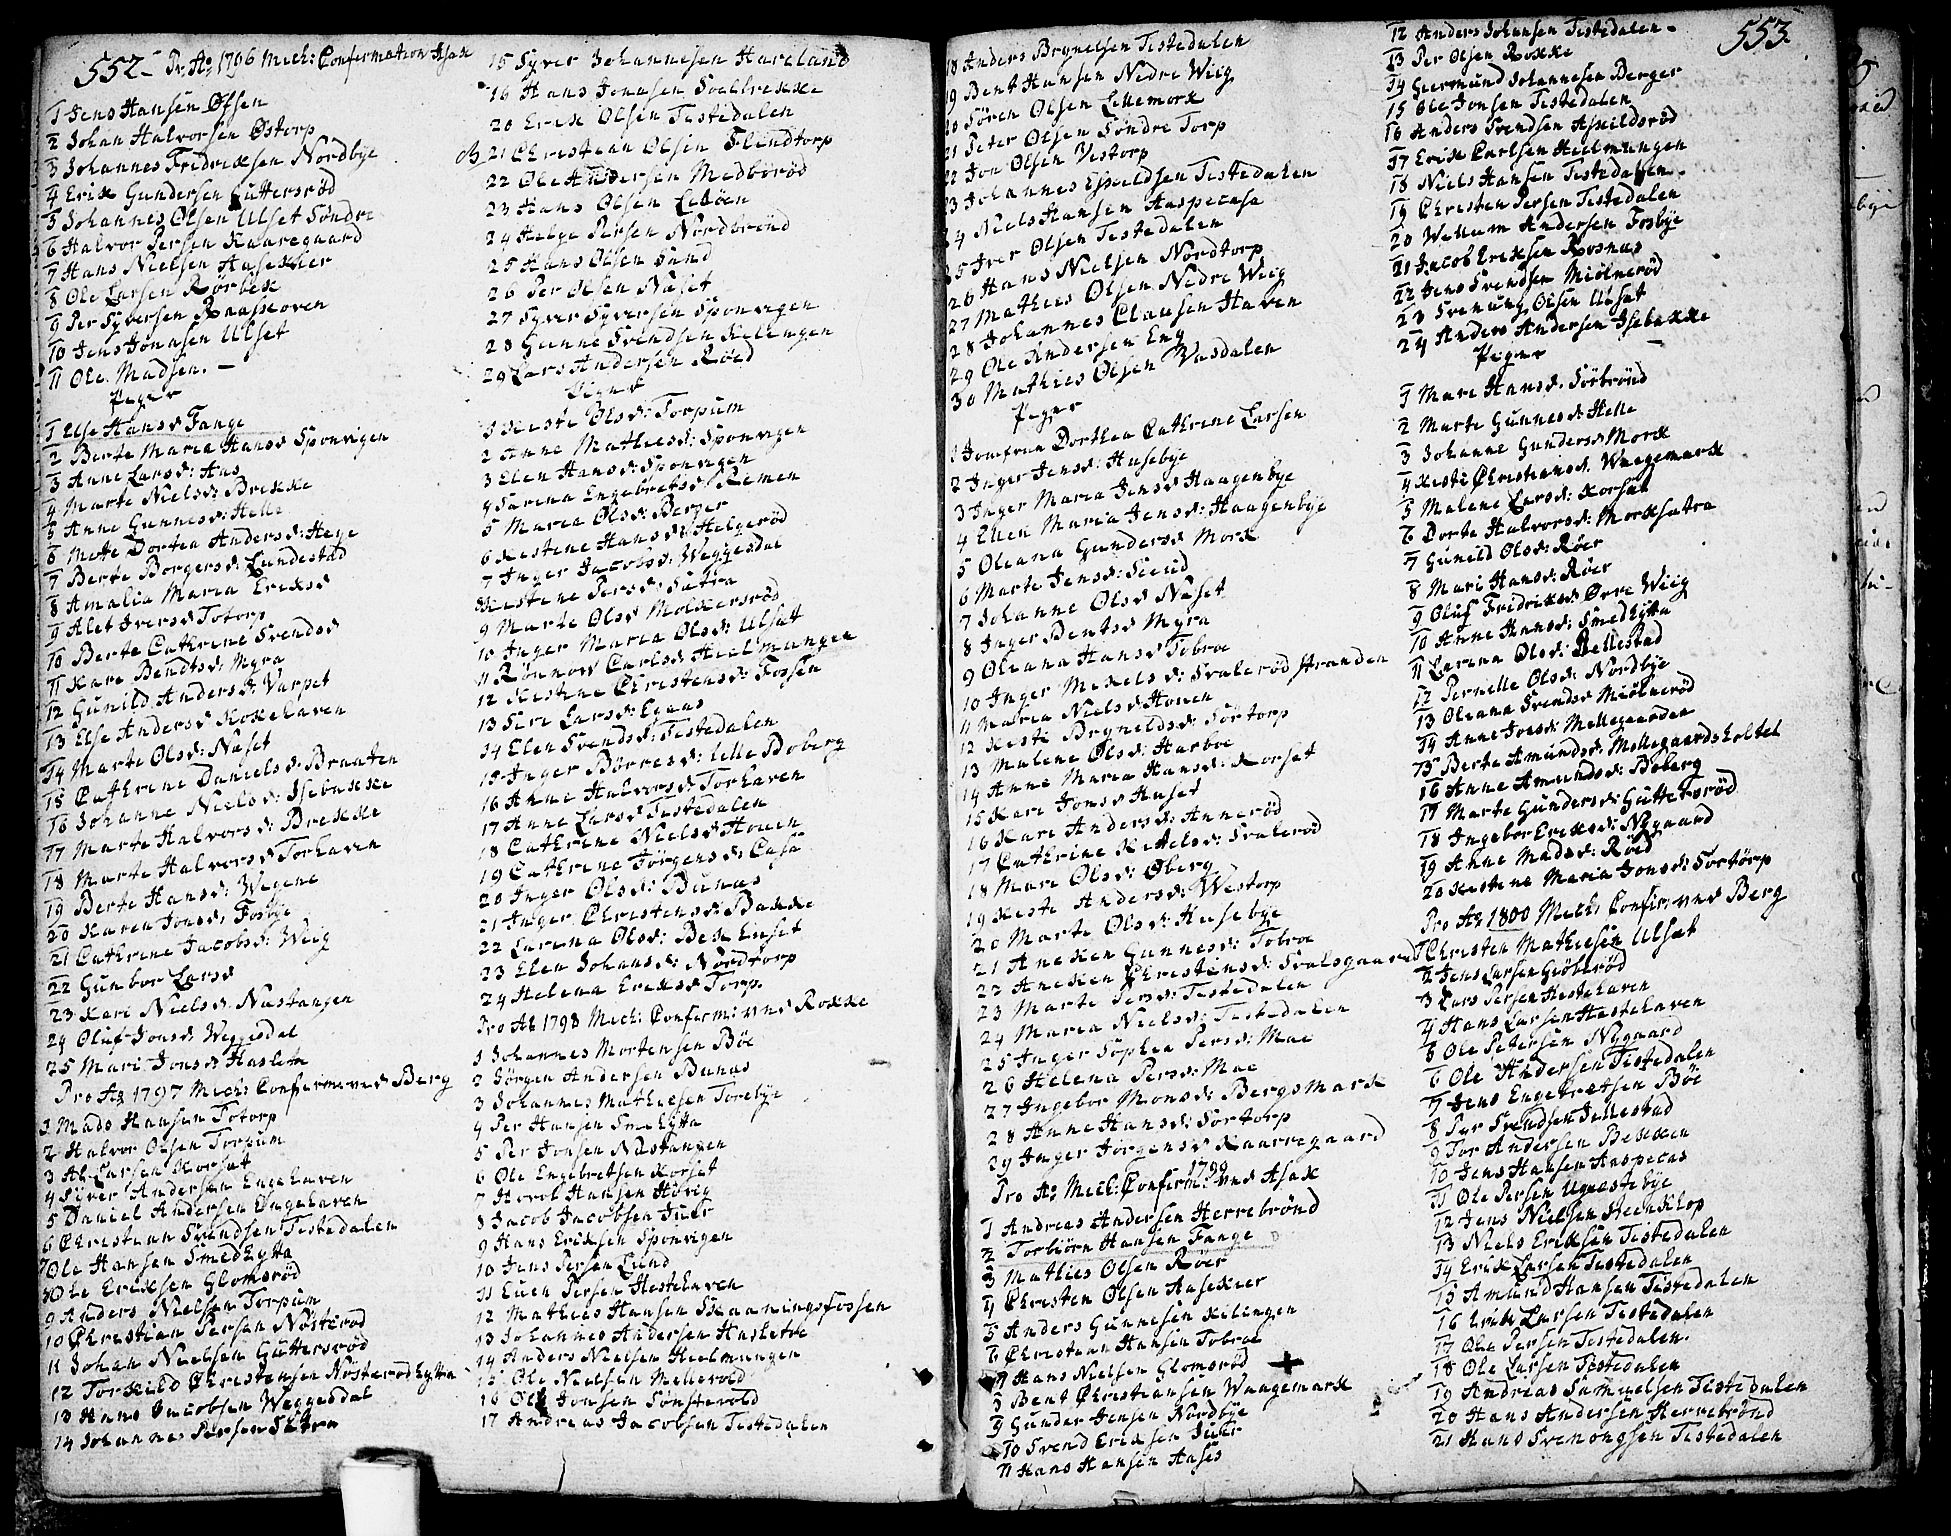 552 - Pr. Ao 1796 Mich: Confirmation Asak
1 Jens Hansen Ofsen
2 Johan Halvorsen Østorp
3 Johannes Fridriksen Nordbye
4 Erik Gundersen Guttersrød
5 Johannes Olsen Ulset Søndre
6 Halvor Persen Kaaregaard
7 Hans Nielsen Asekier
8 Ole Larsen Rørbek
9 Per Syversen Raasskoven
10 Jens Jonasen Ulset
11 Ole Madsen. -
Piger
1 Else Hansd Fange
2 Berte Maria Hansd Sponvigen
3 Anne Larsd: Aas
4 Marte Nielsd: Brekke
5 Anne Gunnesd: Helle
6 Mette Dortea Andersd: Hege
7 Berte Borgersd: Lundestad
8 Amalia Maria Eriksd
9 Alet Iversd Totorp
10 Berte Cathrine Svendsd
11 Kari Bendtsd: Myra
12 Gunild Andersd: Varpet
13 Else Andersd Kokehaven
14 Marte Olsd: Naset
15 Cathrine Danielsd: Braaten
16 Johanne Nielsd: Isebakke
17 Marte Halvorsd: Brekke
18 Marte Halvorsd Torhaven
19 Berte Hansd: Wegene
20 Karen Jonsd: Fosbye
21 Cathrine Jacobsd: Wiig
22 Gunbor Larsd
23 Kari Nielsd: Nastangen
24 Oluf Jonsd: Weggesdal
25 Mari Jonsd Haslem
Pro Ao 1797 Mich: Confirm: ved Berg
1 Mads Hansen Totorp
2 Halvor Olsen Torpum
3 Larsen Korset
4 Syver Andersen Engehaven
5 Daniel Andersen Engehaven
6 Christian Svendsen Tistedalen
7 Ole Hansen Smedhytta
8 Ole Eriksen Glomsrød
9 Anders Nielsen Torpum
10 Christian Persen Nøsterød
11 Johan Nielsen Guttersrød
12 Torkild Christensen Nøsterødhytta
13 Hans Jacobsen Weggesdal
14 Johannes Persen Sætra
15 Syver Johannesen Hareland
16 Hans Jonasen
20 Erik Olsen Tistedalen
21 Christian Olsen Flindtorp
22 Ole Andersen Medbørød
23 Hans Olsen Lidøen
24 Helge Persen Nordbrønd
25 Hans Olsen Sand
26 Per Olsen Naset
27 Syver Syversen Sponvigen
28 Gunne Svendsen Kilingen
29 Lars Andersen Røed
Piger
1 Kirsti Olsd: Torpum
2 Anne Mathiesd: Sponvigen
3 Elen Hansd: Sponvigen
4 Sarina Engebretsd Remen
5 Maria Olsd: Berger
6 Kistene Hansd: Helgerød
7 Inger Jacobsd: Weggesdal
8 Kistene Persd: Sætra
9 Marte Olsd Molkersrød
10 Inger Maria Olsd: Ulset
11 Rønnow Carlsd: Hielmungen
12 Kistine Christensd: Fossen
13 Siri Larsd: Egaas
14 Elen Svendsd: Tistedalen
15 Inger Børresd: lille Boberg
16 Anne Halvorsd Torhaven
17 Anne Larsd Tistedalen
18 Cathrine Nielsd Houen
19 Cathrine Jørgensd: Casa
20 Inger Olsd: Bunas
21 Inger Christensd: Bakke
22 Larina Olsd: Bekhuset
23 Elen Johansd: Nordtorp
24 Helena Eriksd Torp
Pro Ao 1798 Mich: Confirm: ved Rokke
1 Johannes Mortensen Bøe
2 Jørgen Andersen Bunas
3 Johannes Mathiesen Torebye
4 Per Hansen Smedhytta
5 Per Jonsen Nastangen
6 Ole Engebretsen Korset
7 Hansen Høvig
8 Jacob Jacobsen Juer
9 Hans Eriksen Sponvigen
10 Jens Persen Lund
11 Even Persen Hestehaven
12 Mathies Hansen Skaaningsfossen
13 Johannes Andersen Hasletoe
14 Anders Nielsen Hielmungen
15 Ole Nielsen Mellerold
16 Ole Jonsen Sønsterold
17 Andreas Jacobsen Tistedalen
18 Anders Brynelsen Tistedalen
19 Bent Hansen Nedre Wiig
20 Sören Olsen Lillemork
21 Peter Olsen Söndre Torp
22 Jon Olsen Vestorp
23 Johannes Eskildsen Tistedalen
24 Niels Hansen Aaspecasa
25 Iver Olsen Tistedalen
26 Hans Nielsen Nordtorp
27 Mathies Olsen Nedre Wiig
28 Johannes Clausen Haven
29 Ole Andersen Eng
30 Mathies Olsen Vasdalen
Piger
1 Jomfrue Dorthea Cathrine Larsen
2 Inger Jensd: Husebye
3 Inger Maria Jensd Haagenbye
4 Ellen Maria Jensd: Haagenbye
5 Oleana Gundersd Mork
6 Marte Jensd: Sieud
7 Johanne Olsd Naset
8 Inger Bentsd Myra
9 Oleana Hansd Tobroe
10 Inger Mikelsd: Svalerød Stranden
11 Maria Nielsd Houen
12 Kisti Brynildsd: Sörtorp
13 Malene Olsd: Harboe
14 Anne Maria Hansd: Korset
15 Kari Jonsd Huset
16 Kari Andersd: Annerød
17 Cathrine Kittelsd: Svalerød
18 Mari Olsd: Øberg
19 Kisti Andersd: Westorp
20 Marte Olsd: Husebye
21 Aneken Gunnesd: Tobroe
22 Aneken Christensd: Svalsgaard
23 Marte Persd: Tistedalen
24 Maria Nielsd: Tistedalen
25 Inger Sophia Persd: Mae
26 Helena Persd: Mae
27 Ingebor Monsd: Bergsmark
28 Anne Hansd: Sörtorp
29 Inger Jörgensd Kaarregaard
Pro Ao 1799 Mich: Confirm: ved Asak
1 Andreas Andersen Herrebrønd
2 Torbiørn Hansen Fange
3 Mathies Olsen Røer
4 Christen Olsen Asekier
5 Anders Gunnesen Kilingen
6 Christian Hansen Tobroe
7 Hans Nielsen Glomsrød
8 Bent Christiansen Waagemark
9 Gunder Jensen Nordbye
10 Svend Eriksen Juer
11 Hans Hansen Aases
553.
12 Anders Johansen Tistedalen -
13 Per Olsen Rokke
14 Giermund Johannesen Berger
15 Ole Jonsen Tistedalen
16 Anders Svendsen Askildsrød
17 Erik Carlsen Hielmungen
18 Niels Hansen Tistedalen.
19 Christen Persen Tistedalen
20 Wellum Andersen Fosbye
21 Jacob Eriksen Rosnas
22 Jens Svendsen Miölnerød
23 Svenung Olsen Ulset
24 Anders Andersen Isebakke
Piger
1 Mari Hansd. Sörbrönd
2 Marte Gunnesd: Helle
3 Johanne Gundersd Mork
4 Kisti Christiansd. Waagemark
5 Malene Larsd: Korset
6 Dorte Halvorsd: Morksatra
7 Gunild Olsd: Røer
8 Mari Hansd: Røer
9 Oluf Fridriksd Øvre Wiig
10 Anne Hansd: Smedhytta
11 Larina Olsd: Bellestad
12 Pernille Olsd: Nordbye
13 Oleana Svendsd Miölnerød
14 Anne Joesd: Mellegaarden
15 Berte Amundsd: Mellegaardsholtet
16 Anne Amundsd: Boberg
17 Marte Gundersd: Guttersrød
18 Ingebor Eriksd: Nygaard
19 Anne Madsd: Røed
20 Kistene Maria Jonsd: Sortörp
Pro Ao 1800 Mich: Confir: ved Berg
1 Christen Mathiesen Ulset
2 Jens Larsen Giöberød
3 Lars Persen Hestehaven
4 Hans Larsen Hestehaven
5 Ole Petersen Nygaard
6 Ole Andersen Tistedalen
7 Jens Engebretsen Bøe
8 Per Svendsen Jellestad
9 Tor Andersen Bekken
10 Jens Hansen Aaspecas
11 Ole Persen
12 Jens Nielsen Steenklop
13 Niels Eriksen Tistedalen
14 Erik Larsen Tistedalen
15 Amund Hansen Tistedalen
16 Erik Larsen Tistedalen
17 Ole Persen Tistedalen.
18 Ole Larsen Tistedalen
19 Andreas Samuelsen Tistedalen
20 Hans Andersen Herrebrønd
21 Hans Svenongsen Tistedalen